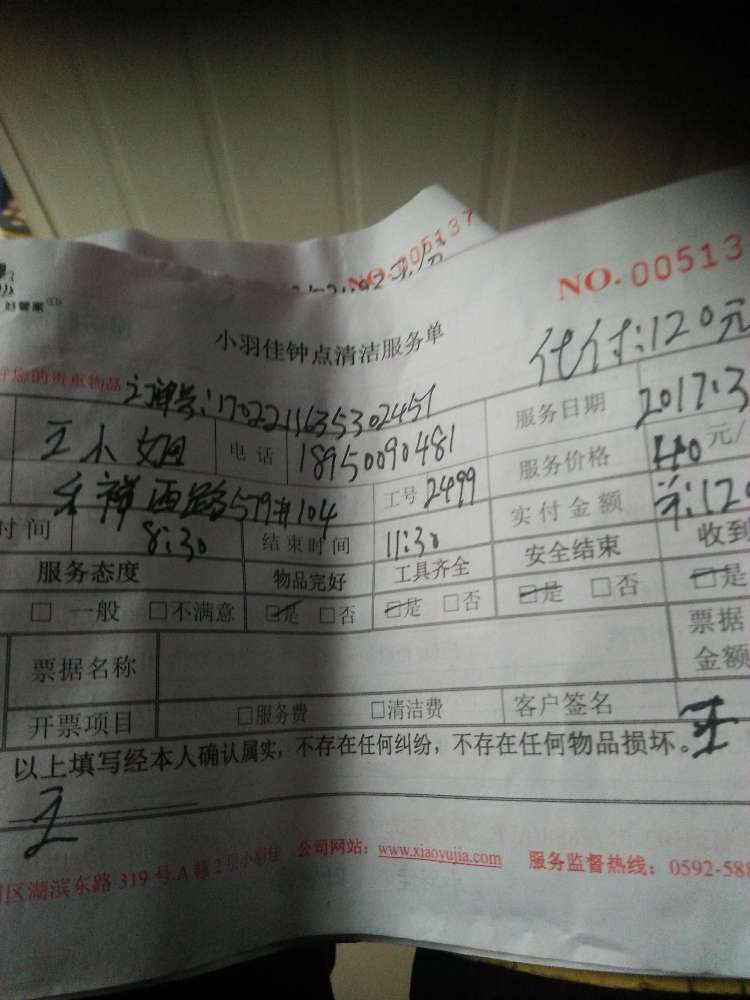 NO. 005137
NO. 00513
好管家
小羽佳钟点清洁服务单
代付:120元
您的贵重物品
订单号:1702211635302451
王小姐 电话 18950090481 服务日期 2017.3
祥西路579#104 工号 2499 服务价格 40 元/
时间 8:30 结束时间 11:30 实付金额 单:120
服务态度 物品完好 工具齐全 安全结束 收到
□ 一般 □不满意 □是 □否 □是 □否 □是 □否 □是
票据名称 票据金额
开票项目 □服务费 □清洁费 客户签名 王
以上填写经本人确认属实,不存在任何纠纷,不存在任何物品损坏。
王
区湖滨东路 319 号.A 幢 2 层小羽佳 公司网站:www.xiaoyujia.com 服务监督热线:0592-588